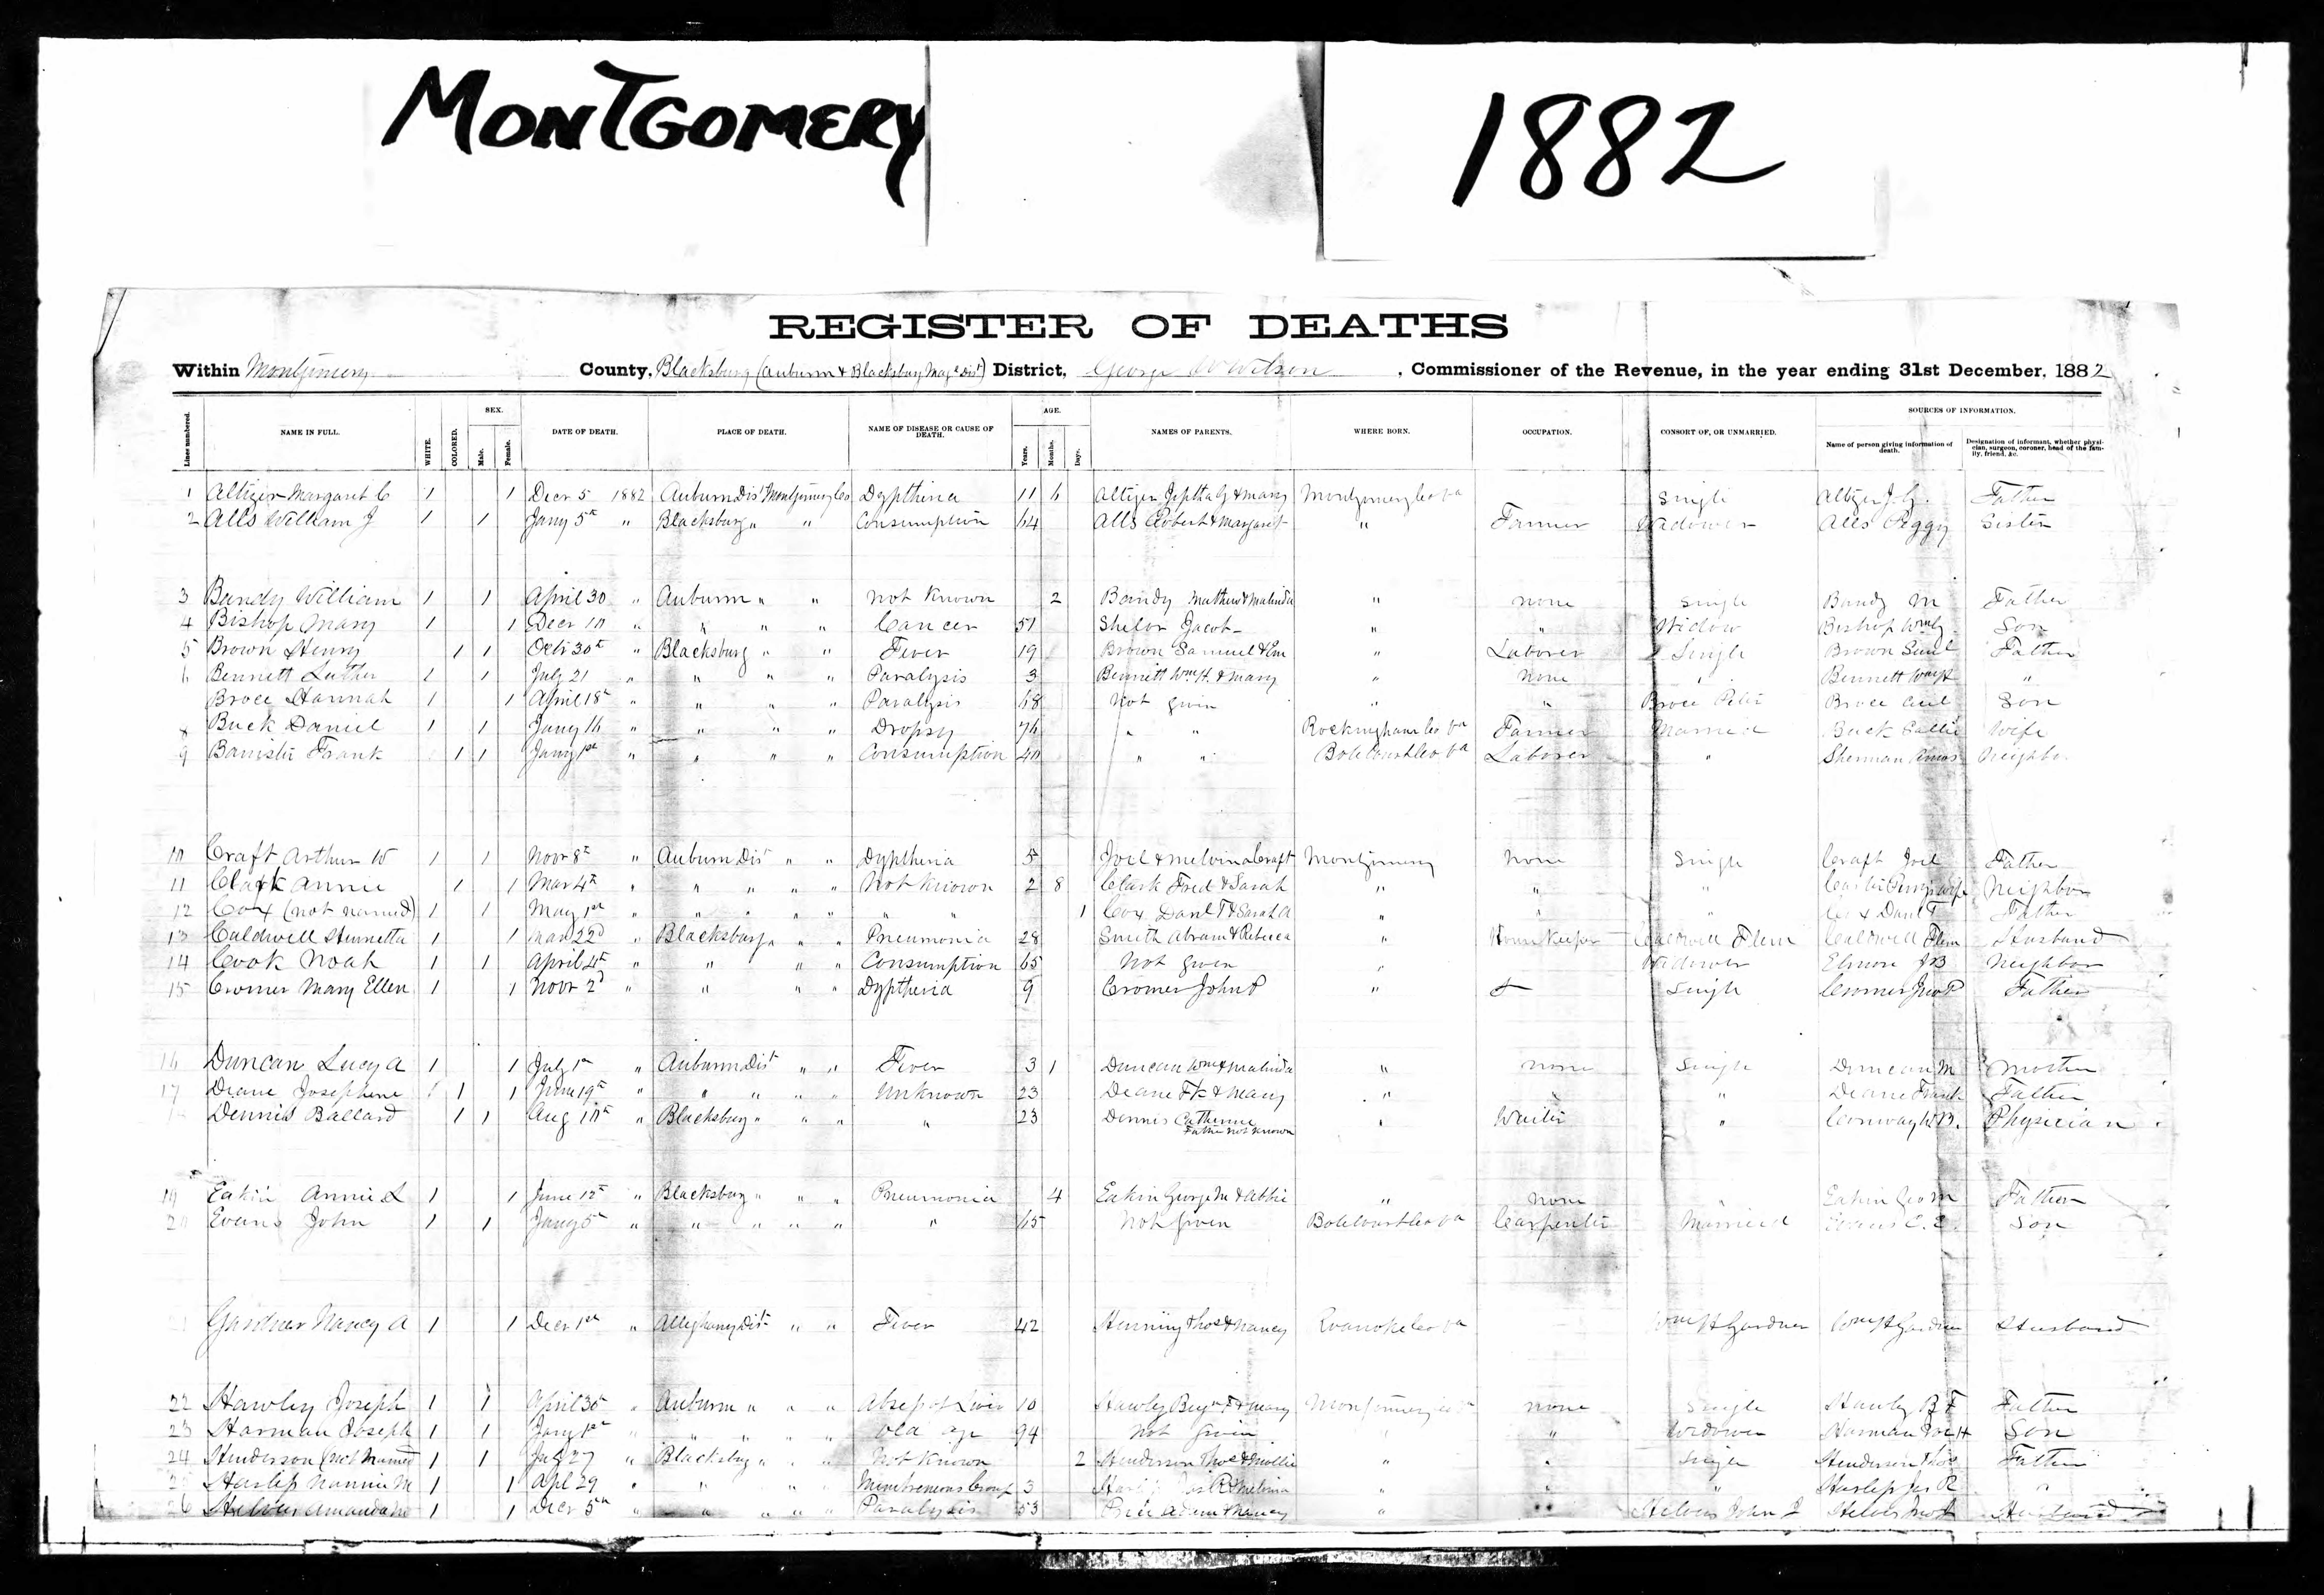 MONTGOMERY
1882
REGISTER OF DEATHS
Within Montgomery County, Blacksburg (Auburn & Blacksburg Mag. Dist) District, George W Wilson, Commissioner of the Revenue, in the year ending 31st December, 1882
SEX. AGE. SOURCES OF INFORMATION.
Lines numbered. NAME IN FULL. WHITE. COLORED. Male. Female. DATE OF DEATH. PLACE OF DEATH. NAME OF DISEASE OR CAUSE OF DEATH. Years. Months. Days. NAMES OF PARENTS. WHERE BORN. OCCUPATION. CONSORT OF, OR UNMARRIED. Name of person giving information of death. Designation of informant, whether physician, surgeon, coroner, head of the family, friend, &c.
1 Altizer Margaret C 1 1 Decr 5 1882 Auburn Dist Montgomery Co Dyptheria 11 6 Altizer Jeptha G & Mary Montgomery Co Va Single Altizer J.G. Father
2 Alls William J 1 1 Jany 5th " Blacksburg " " Consumption 64 Alls Robert & Margaret " Farmer Widower Alls Peggy Sister
3 Bandy William 1 1 April 30 " Auburn " " Not Known 2 Bandy Mathew & Malinda " None Single Bandy M Father
4 Bishop Mary 1 1 Decr 10 " " " " Cancer 51 Shelor Jacob " " Widow Bishop Son
5 Brown Henry 1 1 Octr 30th " Blacksburg " " Fever 19 Brown Samuel & Em " Laborer Single Brown Saml Father
6 Bennett Luther 1 1 July 21 " " " " Paralysis 3 Bennett Wm H. & Mary " None " Bennett Wm H "
Broce Hannah 1 1 April 18th " " " " Paralysis 68 Not given " " Broce Peter Broce Son
8 Buck Daniel 1 1 Jany 16 " " " " Dropsy 76 " " Rockingham Co Va Farmer Married Buck Sallie Wife
9 Banister Frank 1 1 Jany 1st " " " " Consumption 40 " " Botetourt Co Va Laborer " Sherman Amos Neighbor
10 Craft Arthur W 1 1 Novr 8th " Auburn Dist " " Dyptheria 5 Joel & Melvina Craft Montgomery None Single Craft Joel Father
11 Clark Annie 1 1 Mar 4th " " " " " Not Known 2 8 Clark Fred & Sarah " " " Neighbor
12 Cox (not named) 1 1 May 1st " " " " " " " 1 Cox Danl T & Sarah A " " " Cox Danl T Father
13 Caldwell Henrietta 1 1 Mar 22d " Blacksburg " " " Pneumonia 28 Smith Abram & Rebecca " House Keeper Caldwell Flem Caldwell Flem Husband
14 Cook Noah 1 1 April 4th " " " " Consumption 65 Not given " Widower Elmore J B Neighbor
15 Cromer Mary Ellen 1 1 Novr 2d " " " " Dyptheria 9 Cromer John P " Single Cromer Jno P Father
16 Duncan Lucy A 1 1 July 1st " Auburn Dist " " Fever 3 1 Duncan Wm & Malinda " None Single Duncan M Mother
17 Deane Josephine 1 1 June 19th " " " " " Unknown 23 Deane Fk & Mary " " " Deane Frank Father
Dennis Ballard 1 1 Aug 10th " Blacksburg " " " " 23 Dennis Catherine Father not known " Waiter " Conway W.B. Physician
19 Eakin Annie L 1 1 June 12th " Blacksburg " " " Pneumonia 4 Eakin George M & Abbie " None " Eakin Geo M Father
20 Evans John 1 1 Jany 5th " " " " " " 65 Not given Botetourt Co Va Carpenter Married Evans C. E. Son
Gardner Nancy A 1 1 Decr 1st " Alleghany Dist " " Fever 42 Henning Thos & Nancy Roanoke Co Va Wm H Gardner Wm H Gardner Husband
22 Hawley Joseph 1 1 April 30th " Auburn " " " Absep of Liver 10 Hawley Benj F & Mary Montgomery Co Va None Single Hawley B F Father
23 Harman Joseph 1 1 Jany 1st " " " " " Old age 94 Not given " " Widower Harman Son
24 Henderson (not named 1 1 July 27 " Blacksburg " " Not Known 2 Henderson Thos & Mollie " " Single Henderson Thos Father
25 Haslep Nannie M 1 1 Apl 29 " " " " Membreneous Croup 3 Melvina " " " Haslep Jas R "
26 Amanda M 1 1 Decr 5th " " " " Paralysis 53 Price Adam & Nancy " " John Husband